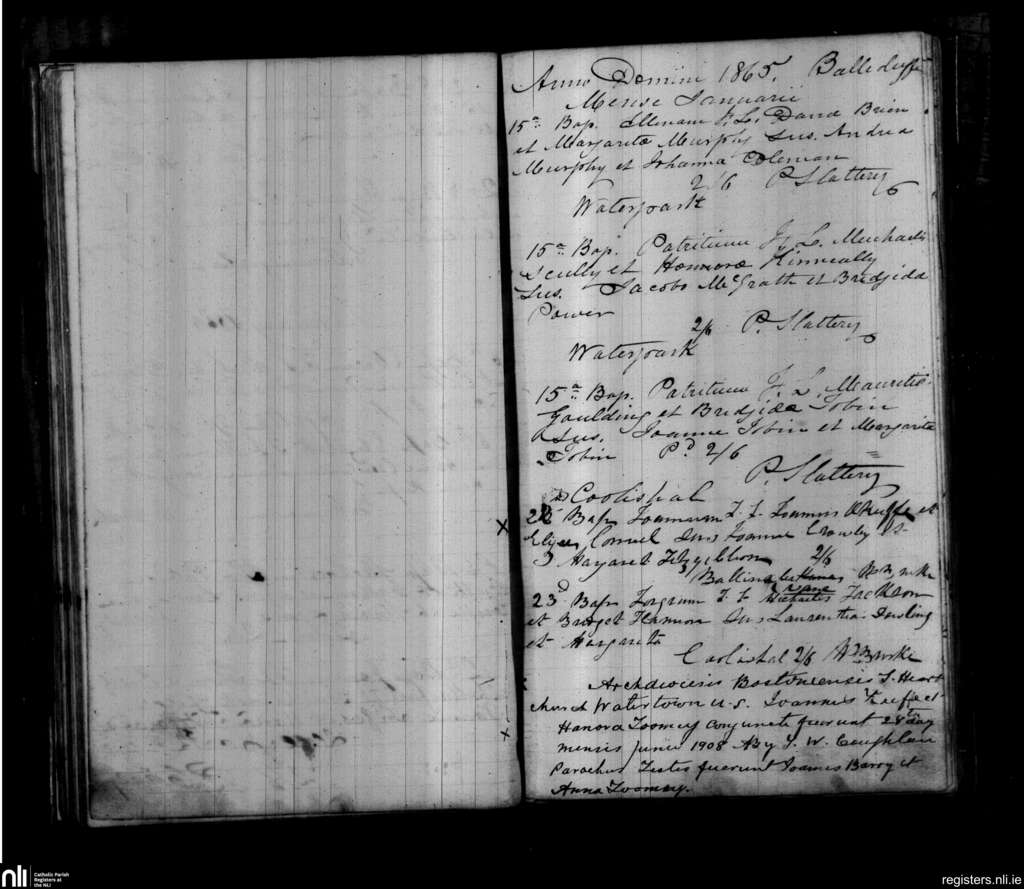 Anno Domini 1865. Balleduff
Mense Januarii
15th Bap. Ellenam F. L. David Brien
et Margarita Murphy Sus. Andrea
Murphy et Johanna Coleman
2/6 P Slattery
Waterpark
15th Bap. Patritium F. L. Michaelis
Scully et Honnora Kinneally
Sus. Jacobo McGrath et Bredjida
Power
2/6 P. Slattery
Waterpark
15th Bap. Patritium F. L. Mauritio
Goulding et Bredjida Tobin
Sus. Joanne Tobin et Margarita
Tobin Pd 2/6
P. Slattery
Coolishal
22 Bap Joannum F. L. Joannis OKeeffe et
Connel Sus Joanne Crowley et
Margaret Fitzgibbon 2/6
23d Bap F. L. Jackson
et Bridget Hannon Sus Laurentia Dowling
et Margarita
Coolishal 2/6 W Burke
Archdiocesis Bostonensis S. Heart
church Watertown U.S. Joannes Keeffe et
Hanora Toomey conjuncti fuerunt 28
mensis Junii 1908 By J. W. Coughlan
Parochus Testes fuerunt Joannes Barry et
Anna Toomey.
nli
Catholic Parish
Registers at
the NLI
registers.nli.ie